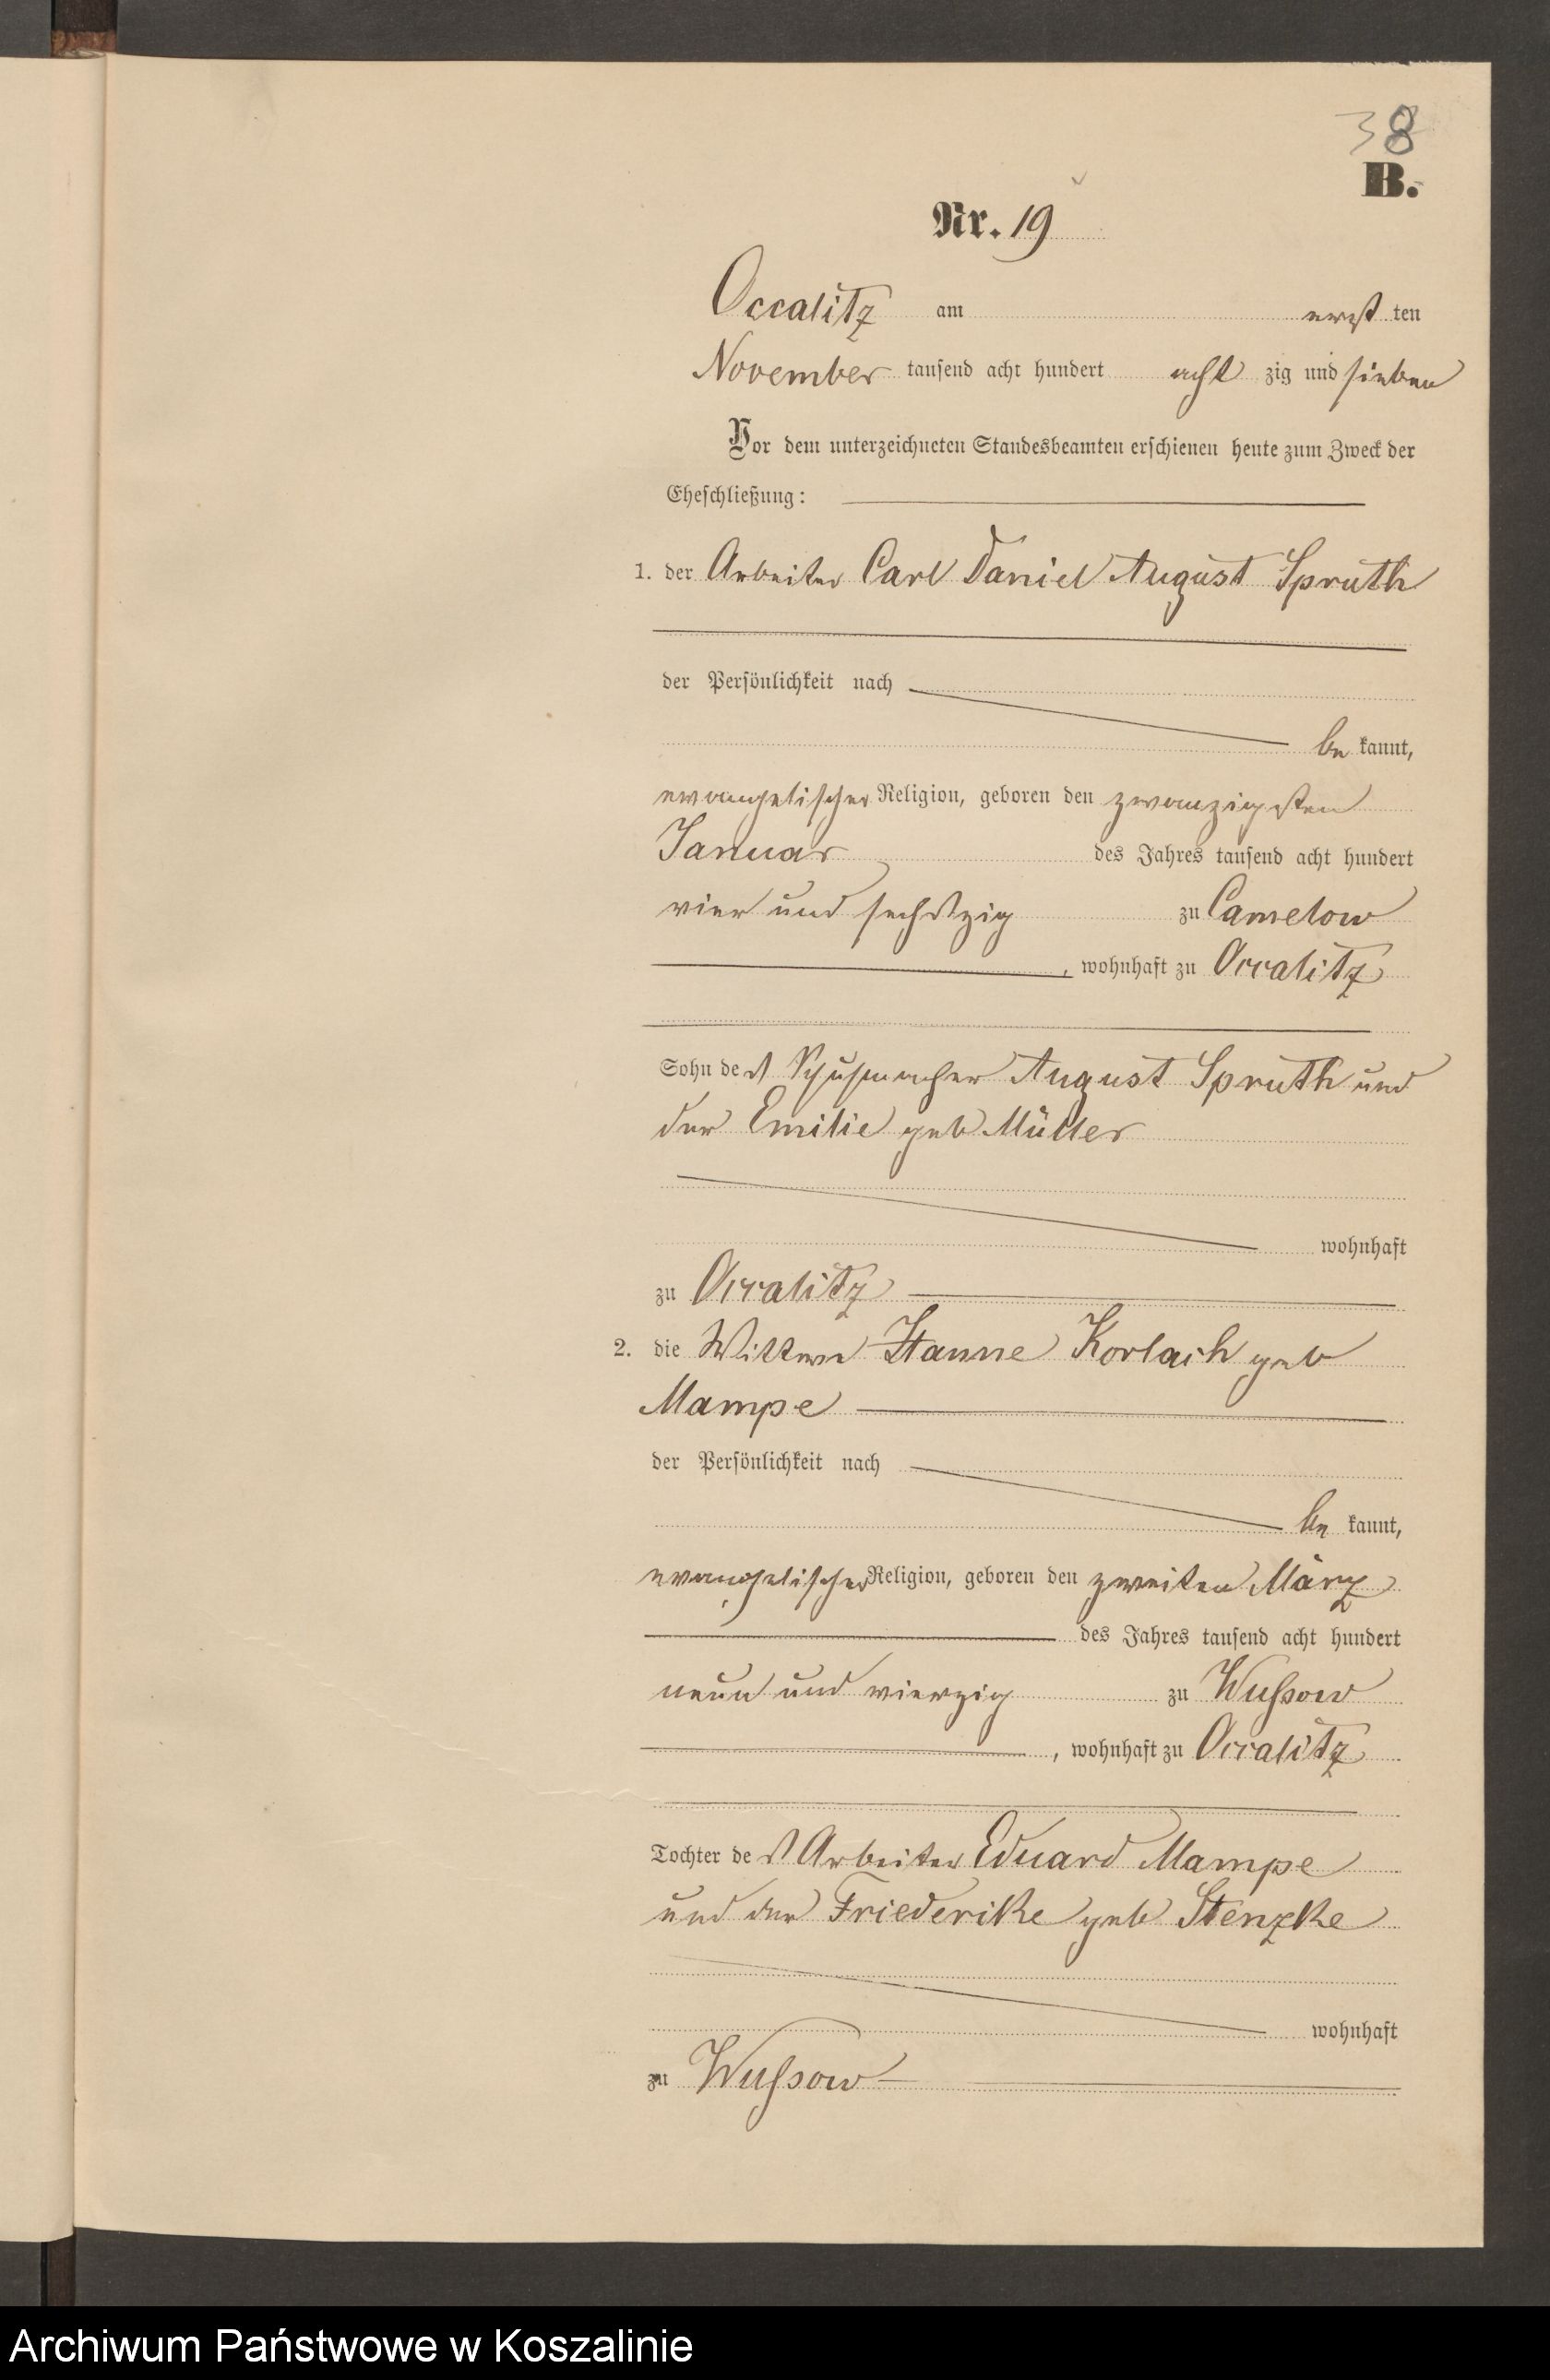 38
B.
Nr. 19
Occalitz am ersten
November tausend acht hundert achtzig und sieben
Vor dem unterzeichneten Standesbeamten erschienen heute zum Zweck der
Eheschließung:
1. der Arbeiter Carl Daniel August Spruth
der Persönlichkeit nach
bekannt,
evangelischer Religion, geboren den zwanzigsten
Januar des Jahres tausend acht hundert
vier und sechszig zu Camelow
, wohnhaft zu Occalitz
Sohn des Schuhmacher August Spruth und
der Emilie geb Müller
wohnhaft
zu Occalitz
2. die Wittwe Hanne Korlach geb
Mampe
der Persönlichkeit nach
bekannt,
evangelischer Religion, geboren den zweiten März
des Jahres tausend acht hundert
neun und vierzig zu Wussow
, wohnhaft zu Occalitz
Tochter des Arbeiter Eduard Mampe
und der Friederike geb Stenzke
wohnhaft
zu Wussow
Archiwum Państwowe w Koszalinie